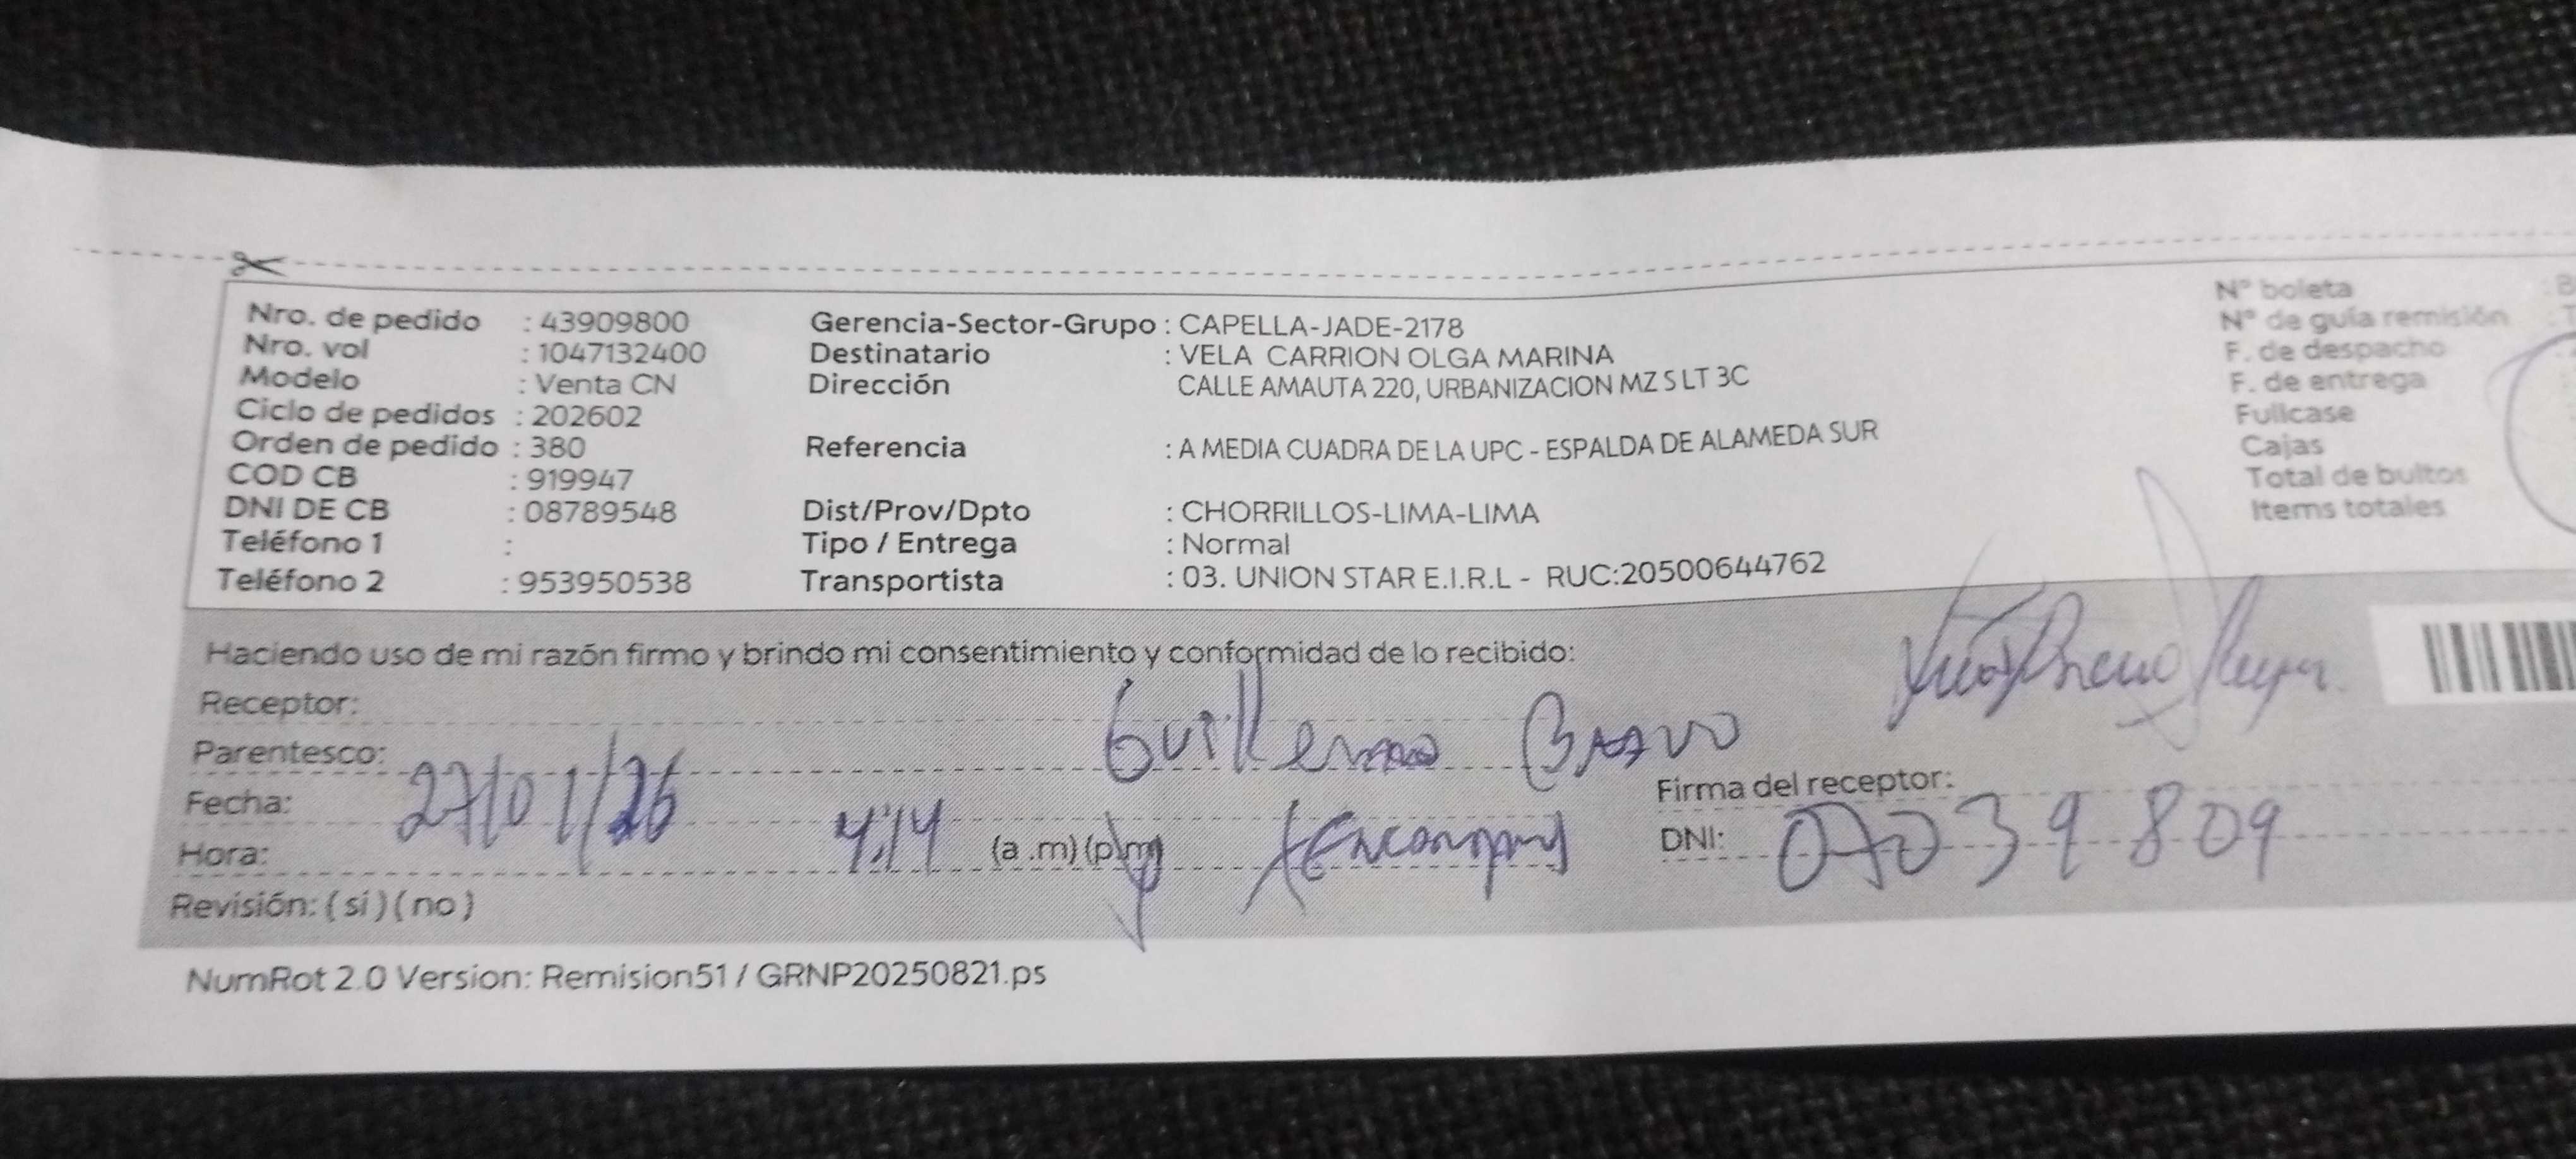 Nro. de pedido : 43909800
Nro. vol : 1047132400
Modelo : Venta CN
Ciclo de pedidos : 202602
Orden de pedido : 380
COD CB : 919947
DNI DE CB : 08789548
Teléfono 1 :
Teléfono 2 : 953950538
Gerencia-Sector-Grupo : CAPELLA-JADE-2178
Destinatario : VELA CARRION OLGA MARINA
Dirección CALLE AMAUTA 220, URBANIZACION MZ S LT 3C
Referencia : A MEDIA CUADRA DE LA UPC - ESPALDA DE ALAMEDA SUR
Dist/Prov/Dpto : CHORRILLOS-LIMA-LIMA
Tipo / Entrega : Normal
Transportista : 03. UNION STAR E.I.R.L - RUC:20500644762
N° boleta
N° de guía remisión
F. de despacho
F. de entrega
Fullcase
Cajas
Total de bultos
Items totales
Haciendo uso de mi razón firmo y brindo mi consentimiento y conformidad de lo recibido:
Receptor: Guillermo Bravo
Parentesco:
Fecha: 27/01/26
Hora: 4:14 (a .m) (p.m)
Revisión: ( si ) ( no )
Firma del receptor:
DNI: 07039809
NumRot 2.0 Version: Remision51 / GRNP20250821.ps